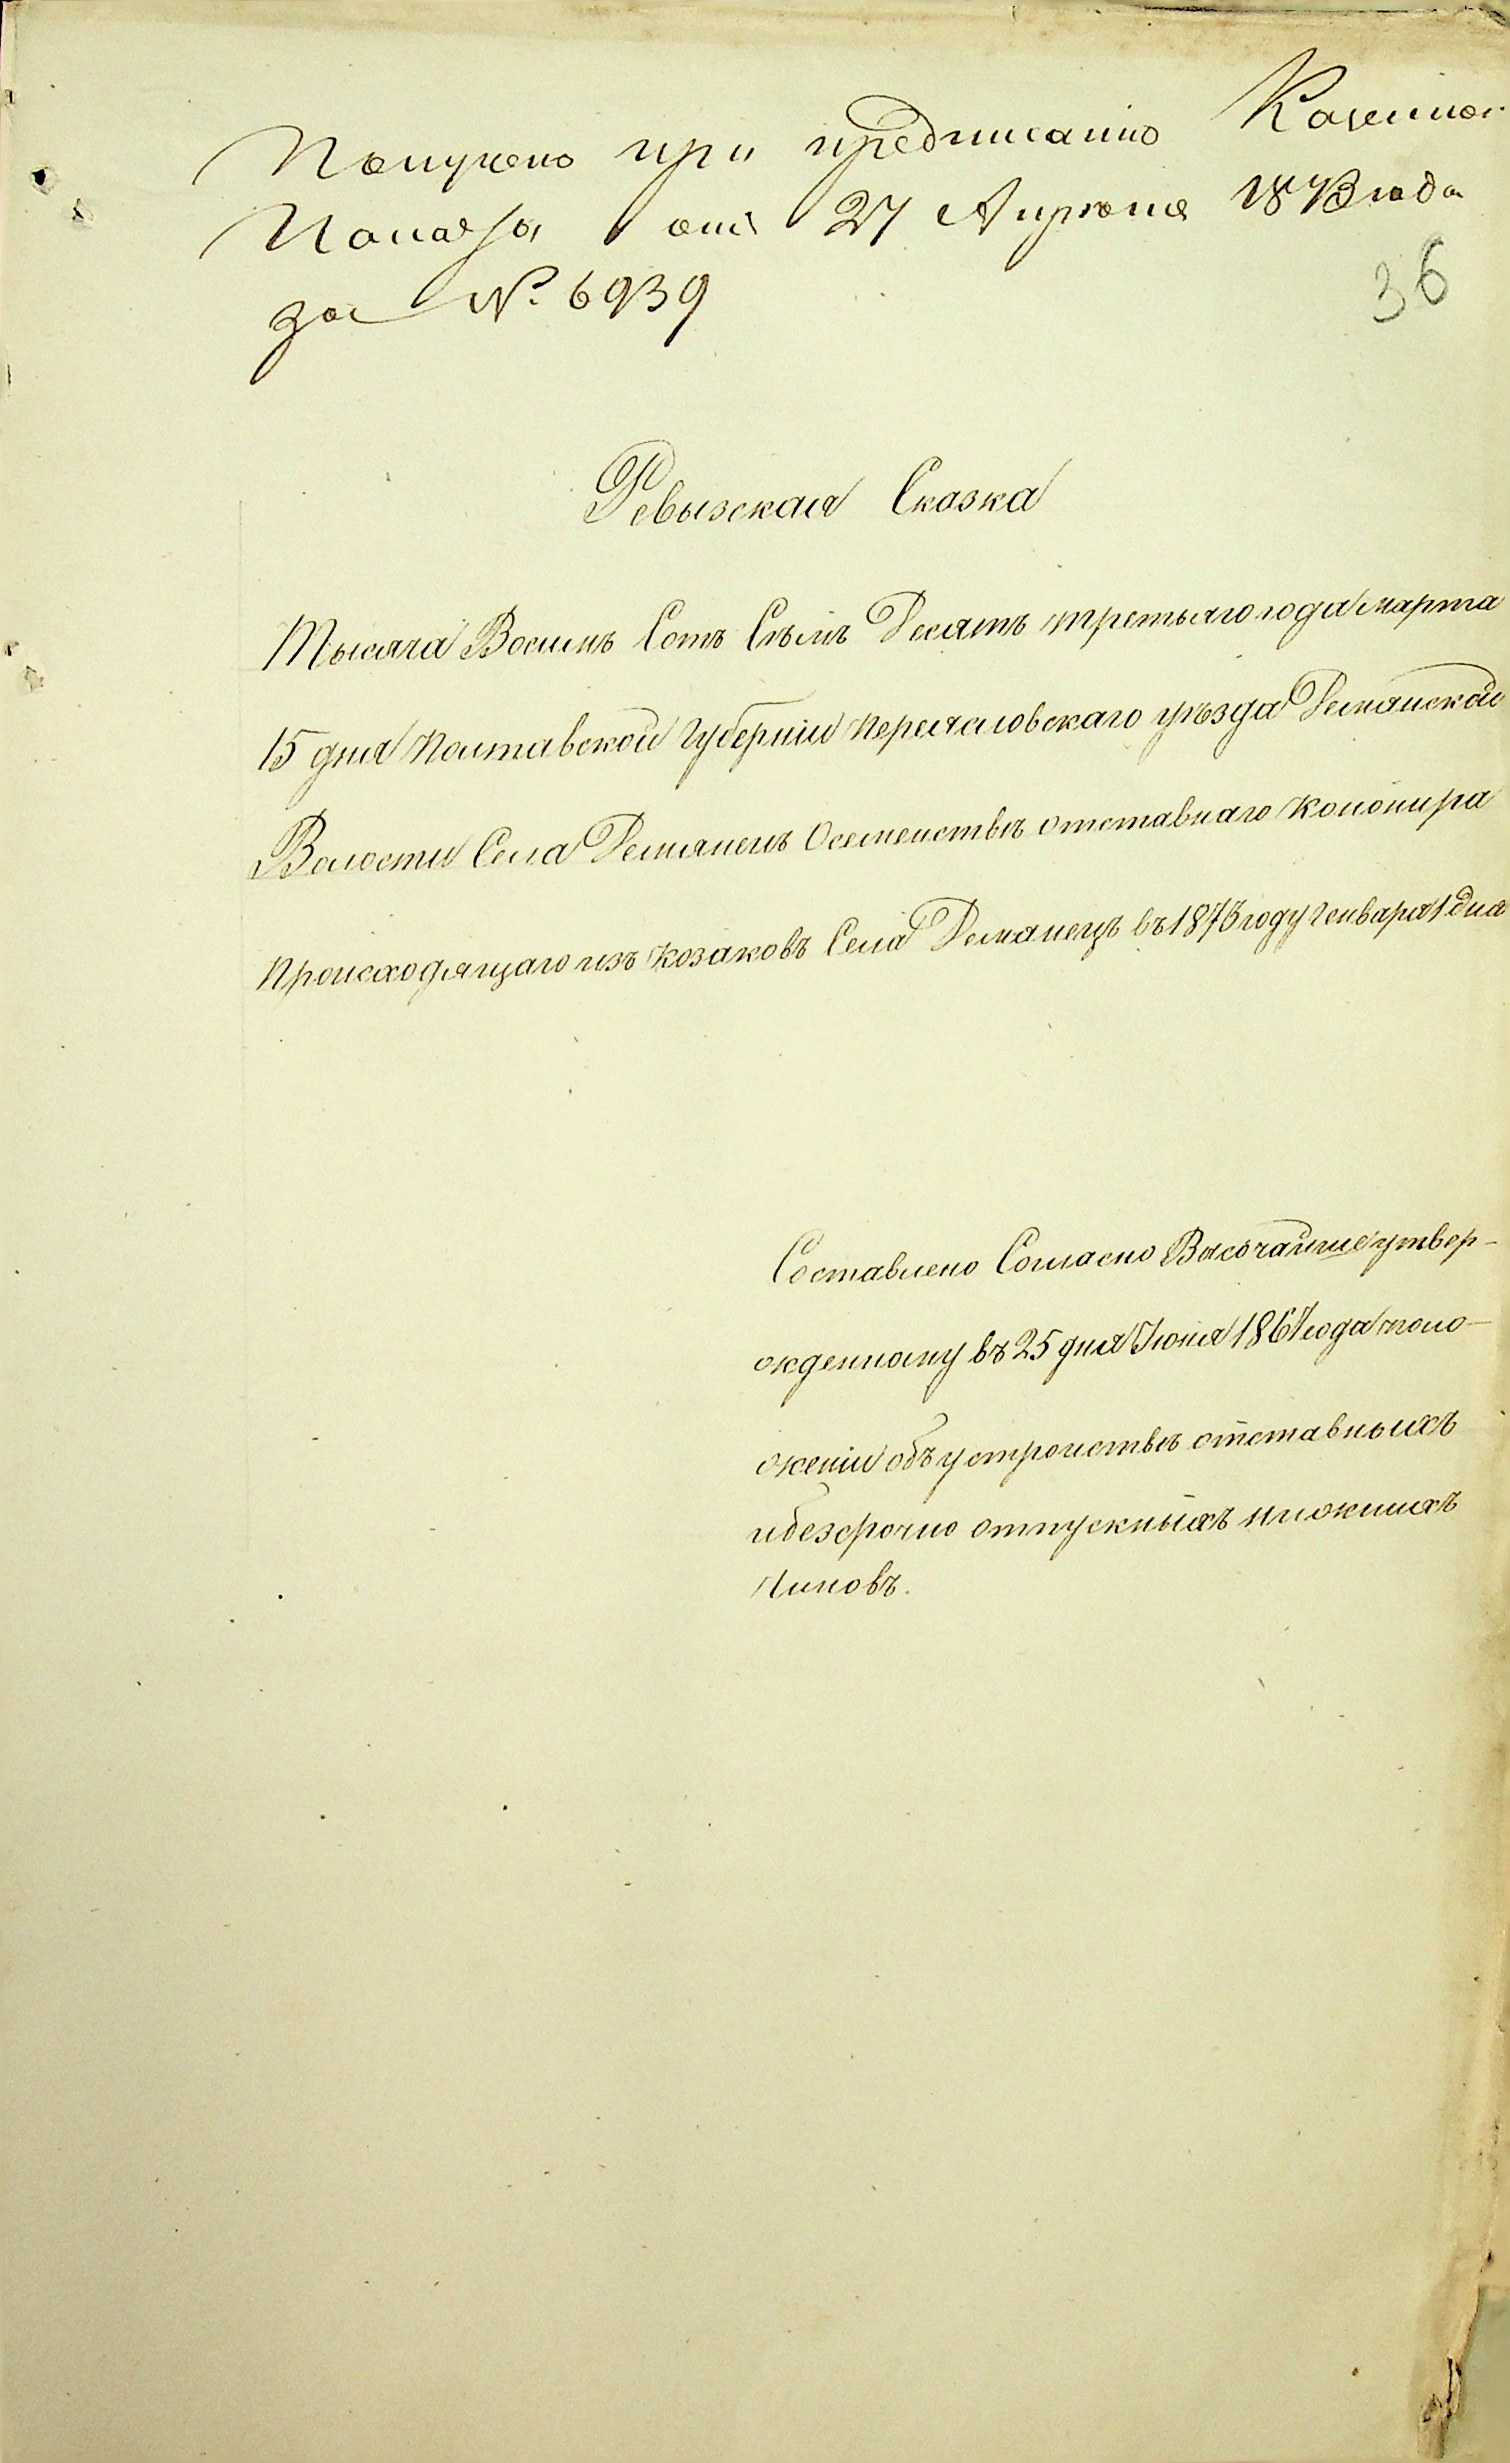 Получено при предписанiю Казенной
Палаты отъ 27 Апреля 1873 года
за № 6939
36
Ревызская Сказка
Тысяча Восимъ Сотъ Семъ Десятъ третьяго года марта
15 дня Полтавской Губернiи Переяловскаго уѣзда Демянской
Волости Села Демянецъ Осемействѣ отставнаго Конōнира
Происходящаго изъ козаковъ Села Демянецъ въ 1873 году Генваря 1 дня
Составлено Согласно Высочайше утвер-
жденному въ 25 дня Iюня 1867 года поло-
женiи объ устройствѣ отставныхъ
и безсрочно отпускныхъ нижнихъ
Чиновъ.